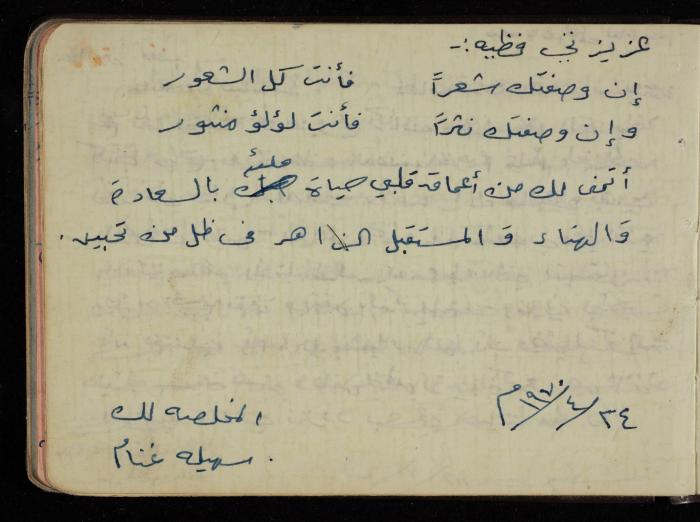 عزيزتي فظيه :-
إن وصفتك شعراً فأنت كل الشعور
وإن وصفتك نثراً فأنت لؤلؤ منثور
أتمنى لك من أعماق قلبي حياة مليئة بالسعادة
والهناء والمستقبل الزاهر في ظل من تحبين .
٢٤/٤/١٩٧٠م
المخلصه لك
سهيله غنام .